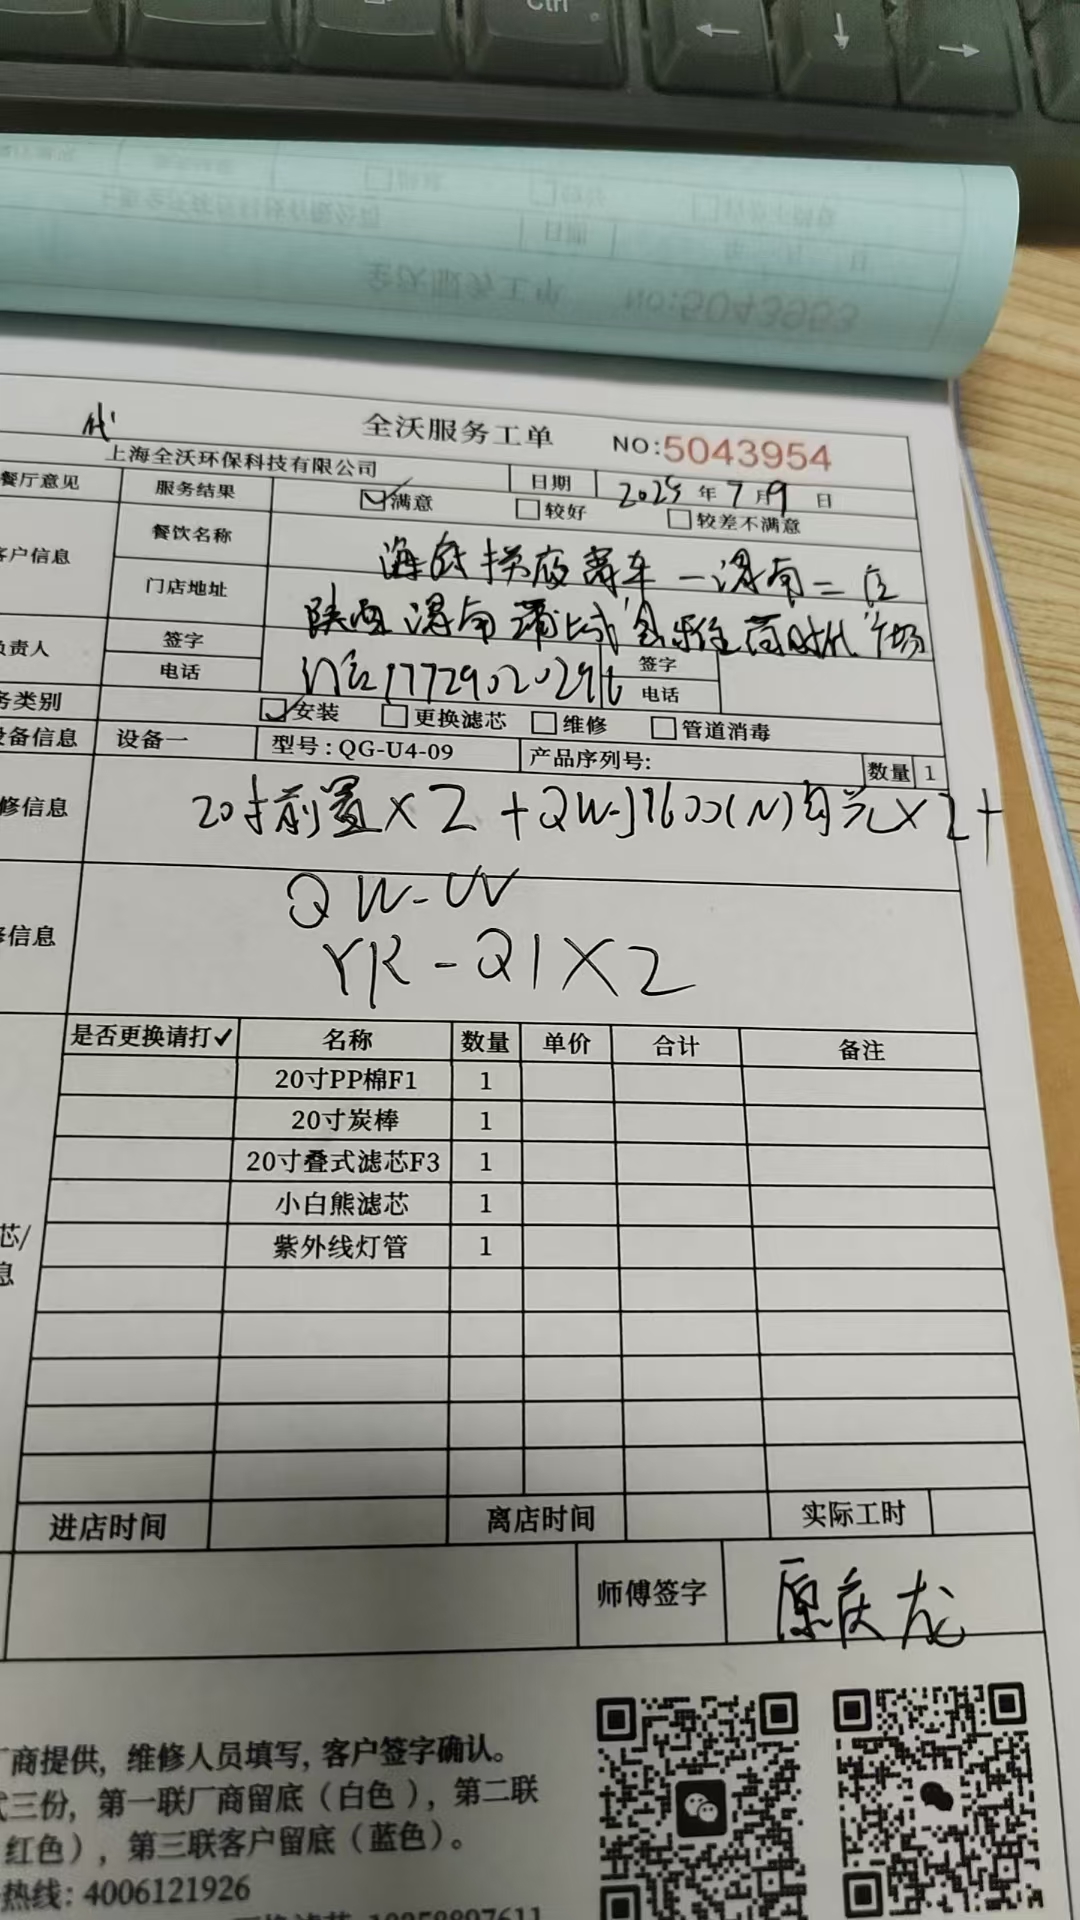 Ctrl
全沃服务工单 NO:5043953
代
全沃服务工单 NO:5043954
上海全沃环保科技有限公司 日期 2025 年 7 月 9 日
餐厅意见 服务结果 满意 较好 较差不满意
客户信息 餐饮名称
门店地址 陕西
负责人 签字 签字
电话 门店17729020296 电话
务类别 安装 更换滤芯 维修 管道消毒
设备信息 设备一 型号:QG-U4-09 产品序列号: 数量 1
修信息 20寸前置×2+QW-J1600(N)×2+
QW-UV
信息 YR-Q1×2
是否更换请打✓ 名称 数量 单价 合计 备注
20寸PP棉F1 1
20寸炭棒 1
20寸叠式滤芯F3 1
小白熊滤芯 1
紫外线灯管 1
芯/
息
进店时间 离店时间 实际工时
师傅签字 原庆龙
厂商提供, 维修人员填写, 客户签字确认。
式三份, 第一联厂商留底(白色), 第二联
红色), 第三联客户留底(蓝色)。
热线: 4006121926